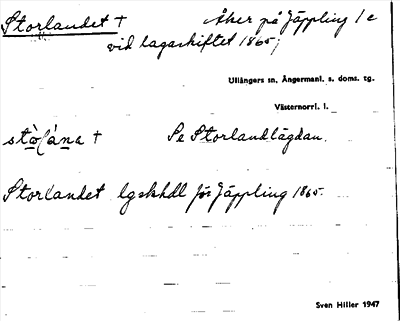 Storlandet † Åker på Jäppling 1 e
vid lagaskiftet 1865;
Ullångers sn, Ångermanl. s. doms. tg.
Västernorrl. l.
Se Storlandlägdan.
Storlandet lgskhdl för Jäppling 1865.
Sven Hiller 1947